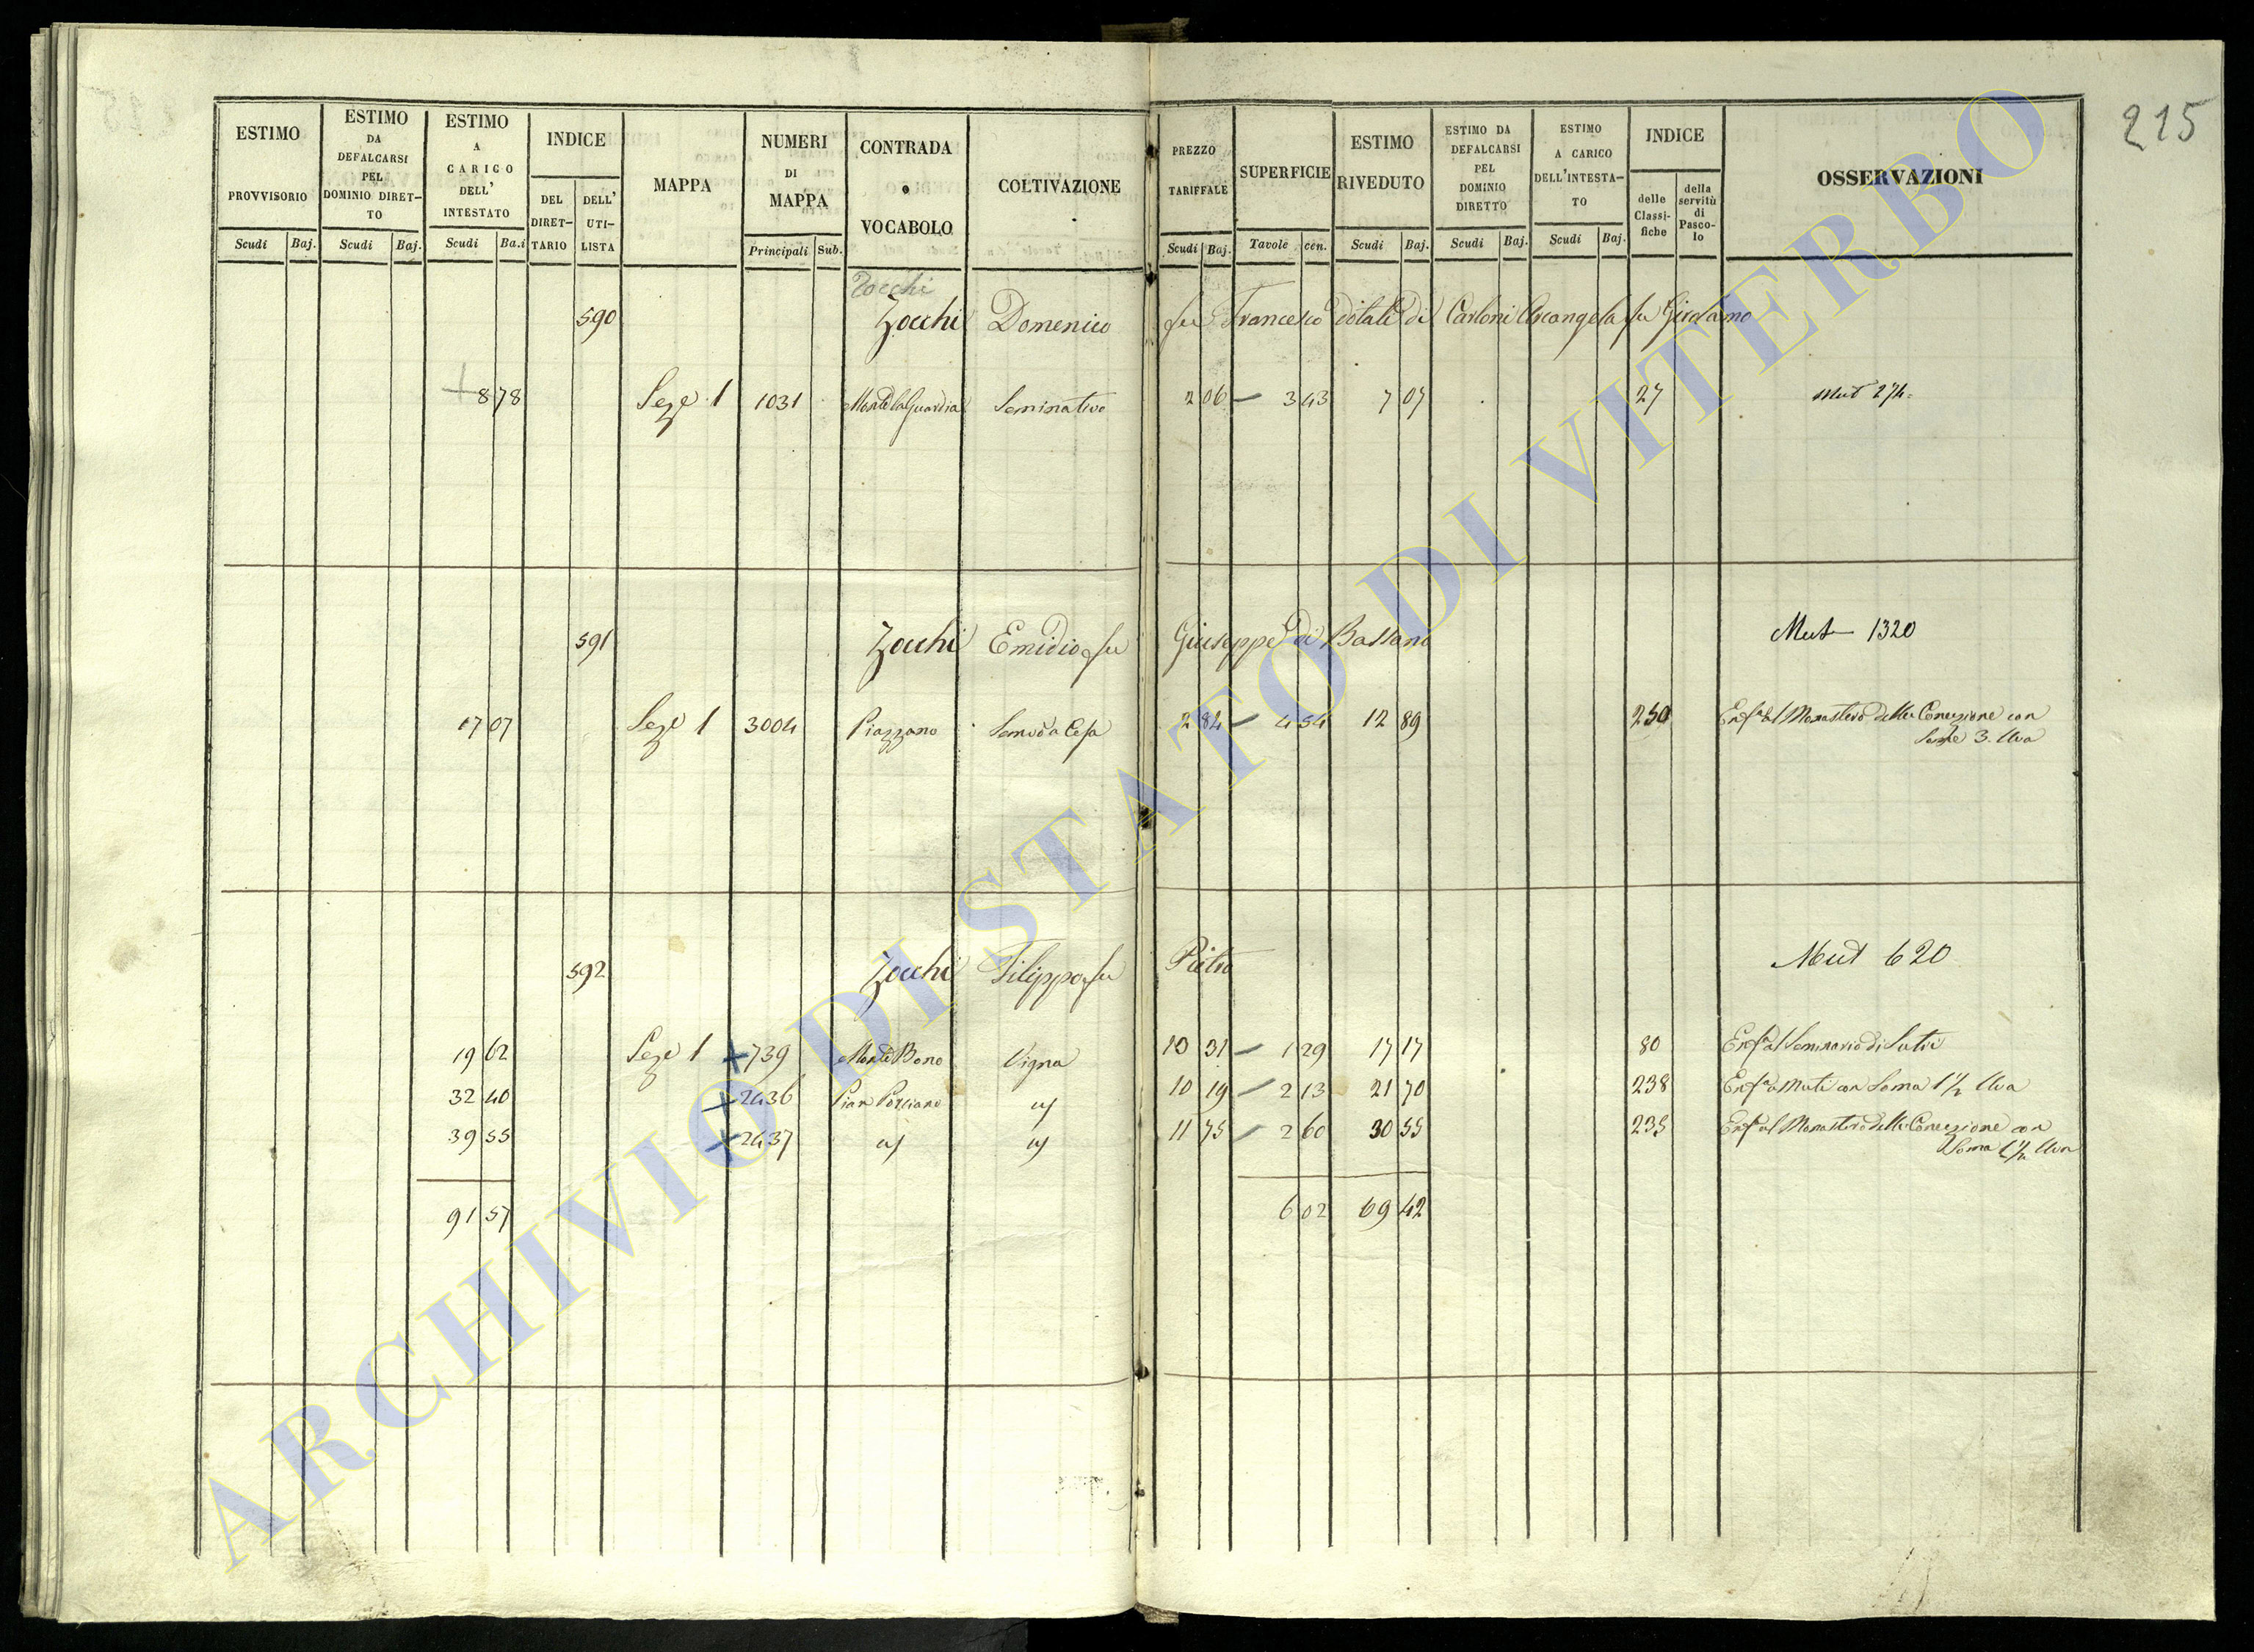 215
ESTIMO PROVVISORIO Scudi Baj.
ESTIMO DA DEFALCARSI PEL DOMINIO DIRET-TO Scudi Baj.
ESTIMO A CARICO DELL' INTESTATO Scudi Ba.i
INDICE DEL DIRET-TARIO DELL' UTI-LISTA
MAPPA
NUMERI DI MAPPA Principali Sub.
CONTRADA o VOCABOLO
COLTIVAZIONE
PREZZO TARIFFALE Scudi Baj.
SUPERFICIE Tavole cen.
ESTIMO RIVEDUTO Scudi Baj.
ESTIMO DA DEFALCARSI PEL DOMINIO DIRETTO Scudi Baj.
ESTIMO A CARICO DELL'INTESTA-TO Scudi Baj.
INDICE delle Classi-fiche della servitù di Pasco-lo
OSSERVAZIONI
Zocchi
590 Zocchi Domenico fu Francesco dotale di Carloni Arcangela fu Girolamo
+ 8 78 Seze 1 1031 Monte la Guardia Seminativo 2 06 — 3 43 7 07 27 Mut 274
591 Zocchi Emidio fu Giuseppe di Bassano Mut 1320
17 07 Seze 1 3004 Piazzano 2 84 — 4 54 12 89 250 Enfa al Monastero della Concezione con
Some 3. Uva
592 Zocchi Filippo fu Pietro Mut 620
19 62 Seze 1 x 739 Monte Bono Vigna 13 31 — 1 29 17 17 80 Enfa al Seminario di Sutri
32 40 x 2436 Pian Porciano 10 19 — 2 13 21 70 238 Enfa a Muti con Soma 1 1/2 Uva
39 55 x 2437 11 75 — 2 60 30 55 235 Enfa al Monastero della Concezione con
Soma 1 1/2 Uva
91 57 6 02 69 42
ARCHIVIO DI STATO DI VITERBO